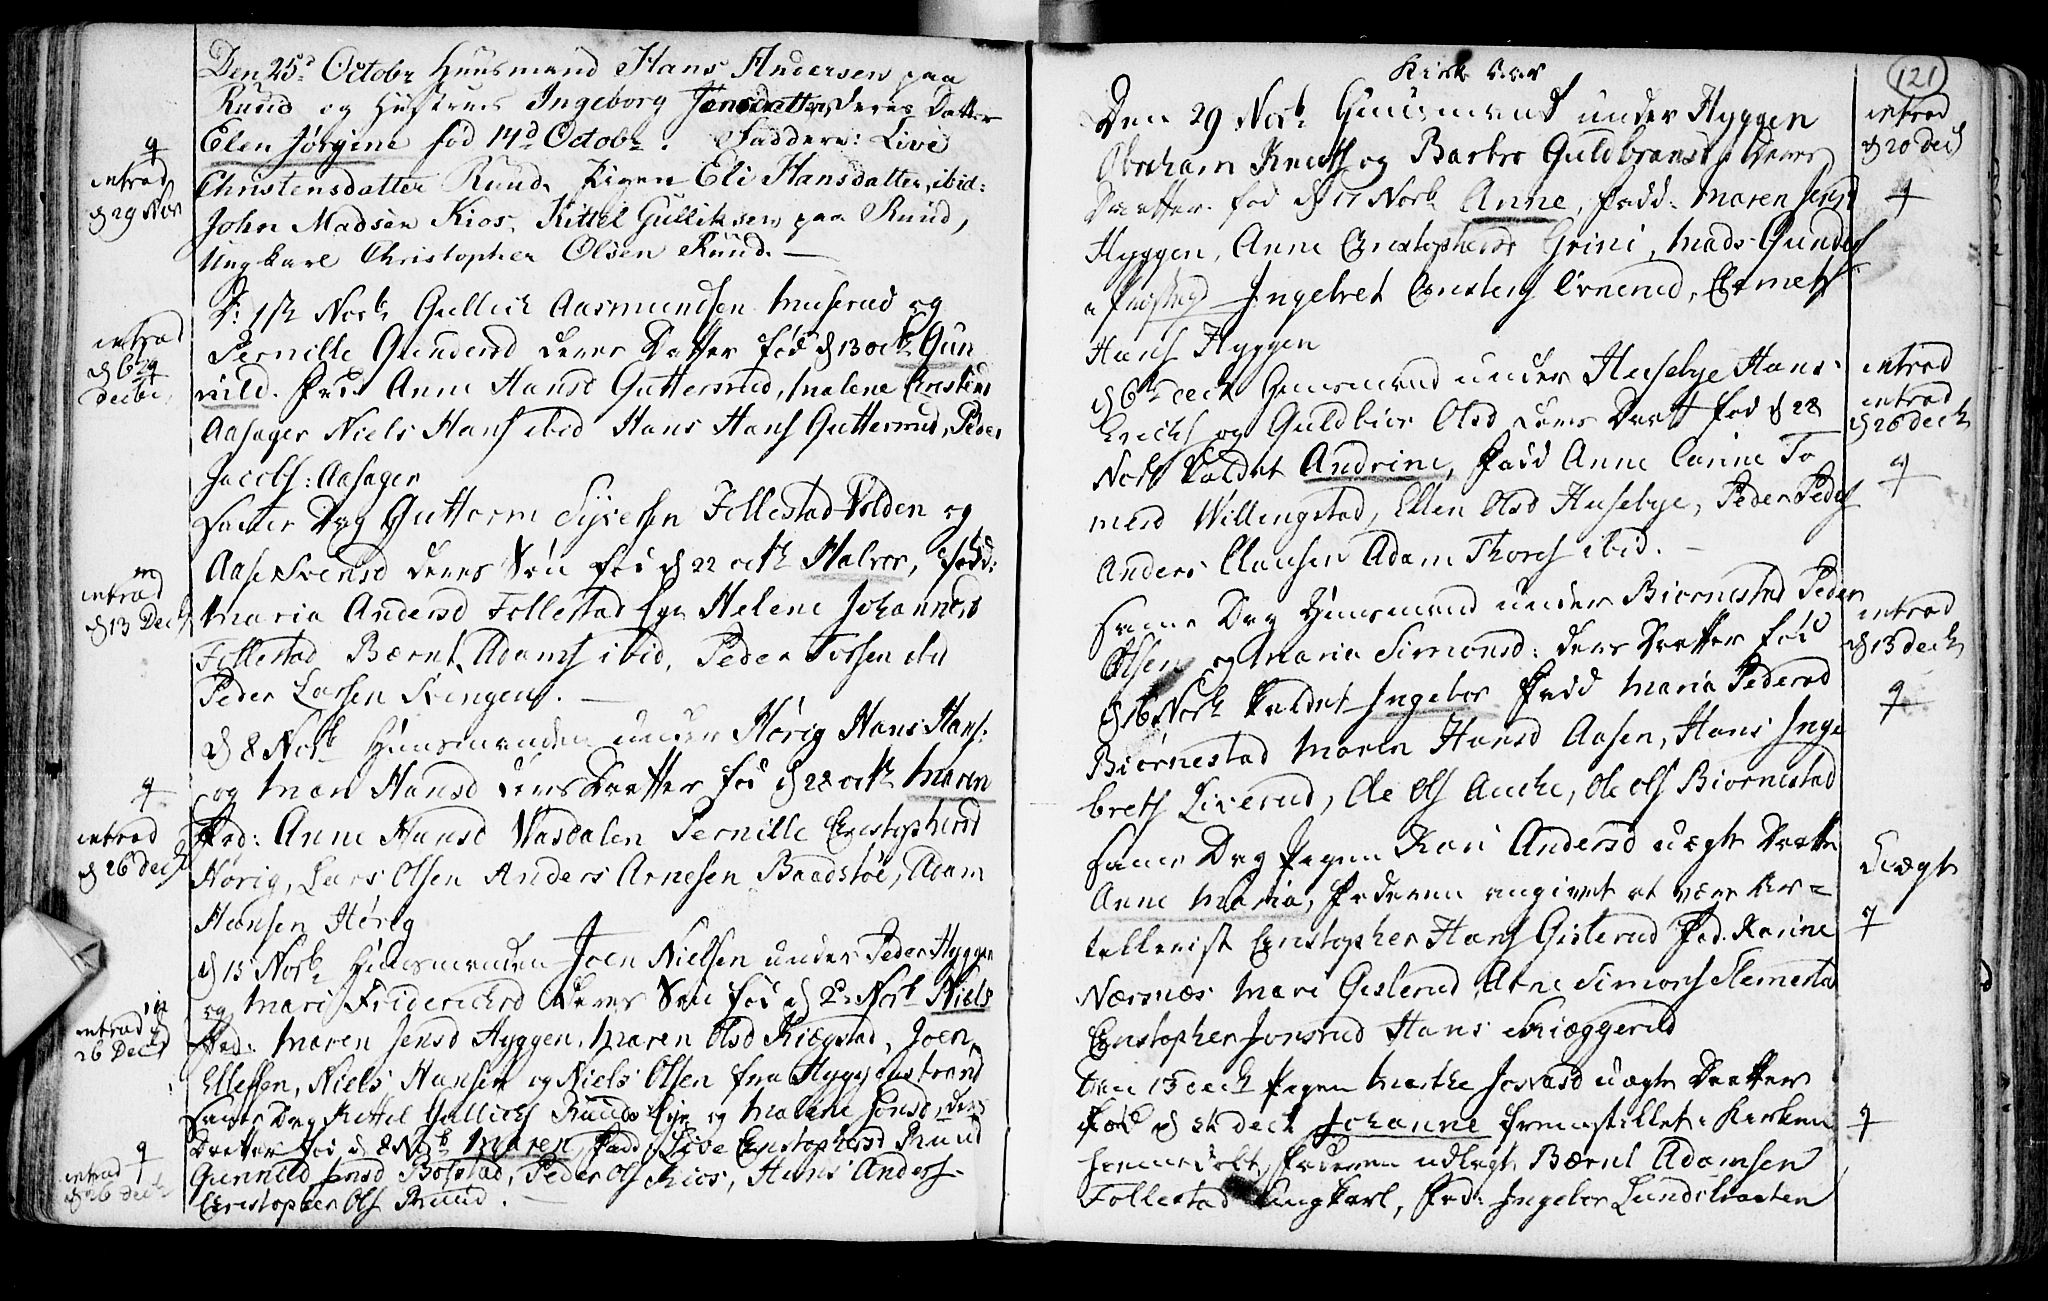 Den 25d Octobr Huusmand Hans Andersen paa
Ruud og Hustrues Ingeborg Jensdatter, deres Datter
Elen Jørgine fød 14d Octobr. Faddere: Live
Christensdatter Ruud. Pigen Eli Hansdatter, ibid:
John Madsen Kios, Kittel Gulliksen paa Ruud,
Ungkarl Christopher Olsen Ruud. —
q
introd
d 29 Nov
D: 1ste Novbr Gullich Aasmundsen Muserud og
Pernille Gundersd deres Datter fød d 13 octbr Gun
nild. Fad Anne Hansd Guttersrud, Malene Christensd
Aasager Niels Hans ibid Hans Hans Guttersrud, Peder
Jacobs: Aasager
introd
d 6te
q
decbr
samme Dag Guttorm Syversen Follestad Volden og
Aase Svensd deres Søn fød d 22 octbr Halvor, fadd:
Maria Andersd Follestad Eje Helene Johannesd
Follestad Bærnt Adams ibid, Peder ibid
Peder Larsen Svingen. —
m
introd
d 13 Decbr
d 8 Novbr Huusmanden under Hørig Hans Hans:
og Mari Hansd deres Datter fød d 28 octbr Maren
Fad: Anne Hansd Vasdalen Pernille Christophersd
Hørig, Lars Olsen Anders Arnesen Baadstøe, Adam
Hansen Hørig
q
introd
d 26 Decbr
d 15 Novbr Huusmanden Joen Nielsen under Peder Hyggen
og Mari Friderichsd deres Søn fød d 2 Novbr Niels
Fad: Maren Jensd Hyggen, Maren Olsd Kiøgstad, Joen
Ellefsen, Niels Hansen og Niels Olsen fra Hyggenstrand
m
introd d
26 Decbr
samme Dag Kittel Gullichs Ruuds Eje og Malene Jonsd deres
Datter fød d 8 Novbr Maren, Fadd: Live Christophersd Ruud
Gunnild Jensd Bølstad, Peder Ols Kios, Hans Anders-
Christopher Ols Ruud. —
q
introd
d 26 Decbr
121
Den 29 Novbr Huusmand under Hyggen
Abraham Knuds og Barbro Guldbransd deres
Datter fød d 17 Novbr Anne, Fadd: Maren Jensd
Hyggen, Anne Christophersd Grini, Mads Gunders
Ingebret Christens Ernerud,
Hans Hyggen
introd
d 20 Decbr
q
d 6te Decbr Huusmand under Husebye Hans
Erichs og Guldbiør Olsd deres Datt fød d 28
Novbr kaldet Andrine, Fadd Anne Carine To
mesd Willingstad, Ellen Olsd Husebye, Peder Peders
Anders Clausen Adam Thores ibid. —
introd
introd
d 26 decbr
q
samme Dag Huusmand under Biørnestad Peder
Olsen og Maria Simonsd: deres Datter fød
d 16 Novbr kaldet Ingebor Fadd Maria Pedersd
Biørnestad Maren Hansd Aasen, Hans Inge
brets Liverud, Ole Ols Auche, Ole Ols Biørnestad
introd
d 13 decbr
q
samme Dag Pigen Kari Andersd uægte Datter
Anne Maria, Faderen angivet at være Ar=
tellerist Christopher Hans Gisterud Fad. Karine
Nærsnæs Mari Gisterud, Arne Simons Slemestad
Christopher Jonsrud Hans Skiæggerud
Uægte
q
Den 13 decbr Pigen Marthe uægte Datter
fød d 5te decbr Johanne fremstillet i Kirken
samme dato, Faderen udlagt Bærnt Adamsen
Follestad Ungkarl, Fad: Ingebor
q